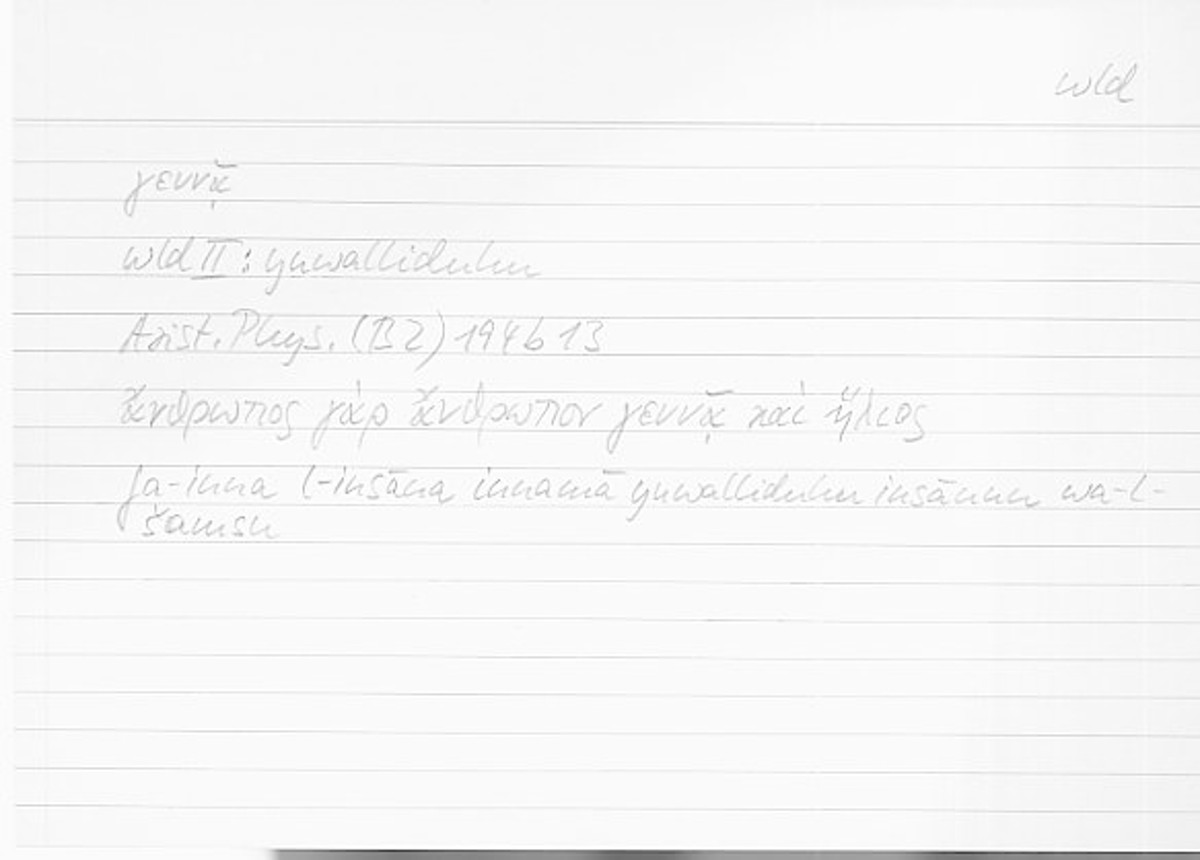 wld
γεννᾷ
wld II: yuwalliduhu
Arist. Phys. (B2) 194b13
ἄνθρωπος γὰρ ἄνθρωπον γεννᾷ καὶ ἥλιος
fa-inna l-insāna innamā yuwalliduhu insānun wa-l-
šamsu